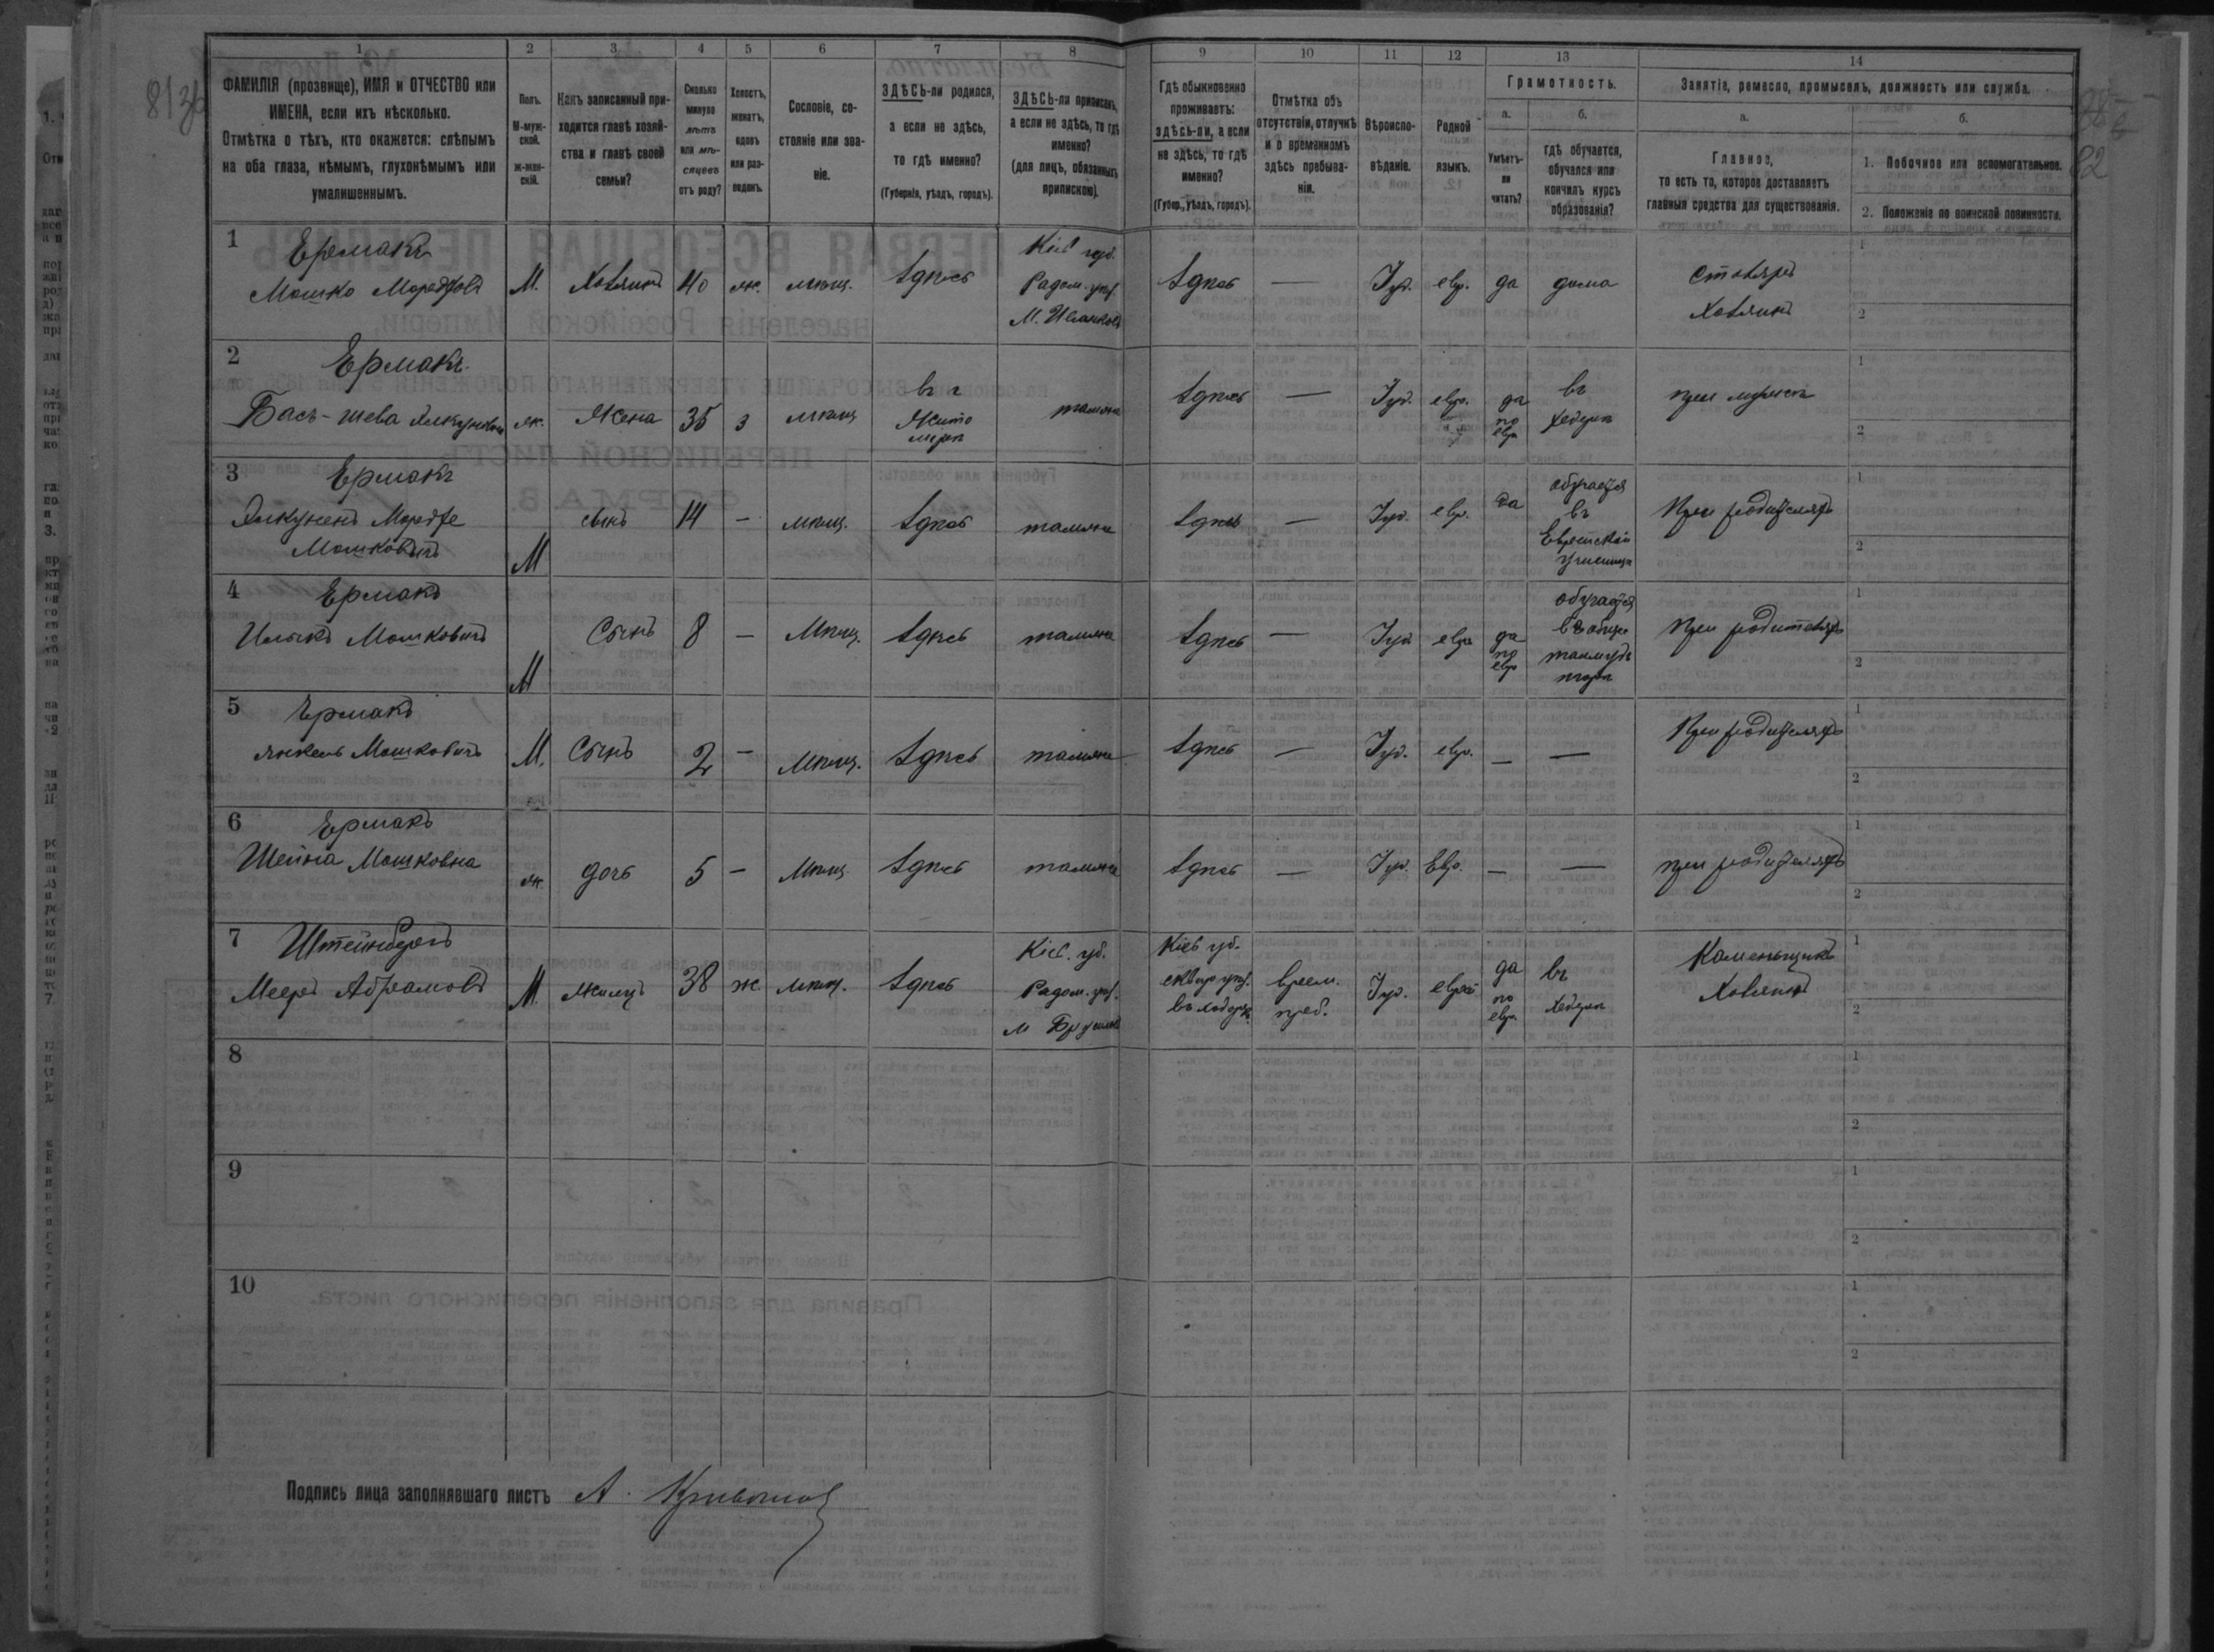 1 2 3 4 5 6 7 8 9 10 11 12 13 14
ФАМИЛІЯ (прозвище), ИМЯ и ОТЧЕСТВО или
ИМЕНА, если ихъ нѣсколько.
Отмѣтка о тѣхъ, кто окажется: слѣпымъ
на оба глаза, нѣмымъ, глухонѣмымъ или
умалишеннымъ.
Полъ.
М-муж-
ской.
ж-жен-
скій.
Какъ записанный при-
ходится главѣ хозяй-
ства и главѣ своей
семьи?
Сколько
минуло
лѣтъ
или мѣ-
сяцевъ
отъ роду?
Холостъ,
женатъ,
вдовъ
или раз-
веденъ.
Сословіе, со-
стояніе или зва-
ніе.
ЗДѢСЬ-ли родился,
а если не здѣсь,
то гдѣ именно?
(Губернія, уѣздъ, городъ).
ЗДѢСЬ-ли приписанъ,
а если не здѣсь, то гдѣ
именно?
(для лицъ, обязанныхъ
припискою).
Гдѣ обыкновенно
проживаетъ:
здѣсь-ли, а если
не здѣсь, то гдѣ
именно?
(Губер., уѣздъ, городъ).
Отмѣтка объ
отсутствіи, отлучкѣ
и о временномъ
здѣсь пребыва-
ніи.
Вѣроиспо-
вѣданіе.
Родной
языкъ.
Грамотность.
а.
Умѣетъ-
ли
читать?
б.
гдѣ обучается,
обучался или
кончилъ курсъ
образованія?
Занятіе, ремесло, промыселъ, должность или служба.
а.
Главное,
то есть то, которое доставляетъ
главныя средства для существованія.
б.
1. Побочное или вспомогательное.
2. Положеніе по воинской повинности.
8136
82
1
Ермакъ
Мошко Мордковъ
М.
Хозяинъ
40
ж.
мѣщ.
здѣсь
Кіев губ.
Радом. уѣз.
М. Иванковъ
здѣсь
—
Іуд.
евр.
да
дома
Столяръ
Хозяинъ
1
2
2
Ермакъ
Бась-шева
ж.
Жена
35
з
мѣщ
въ г
Жито
мірѣ
тамже
здѣсь
—
Іуд.
евр.
да
по
евр
въ
хедерѣ
при мужѣ
1
2
3
Ермакъ
Мордке
Мошковичъ
М
сынъ
14
-
мѣщ.
здѣсь
тамже
здѣсь
—
Іуд.
евр.
да
обучается
въ
Еврейском
училищѣ
При родителяхъ
1
2
4
Ермакъ
Мошковичъ
М
Сынъ
8
-
Мѣщ.
здѣсь
тамже
здѣсь
—
Іуд
евр
да
по
евр
обучается
талмудъ
торѣ
При родителяхъ
1
2
5
Ермакъ
Янкель Мошковичъ
М.
Сынъ
2
-
Мѣщ.
здѣсь
тамже
здѣсь
—
Іуд.
евр.
—
—
При родителяхъ
1
2
6
Ермакъ
Шейна Мошковна
ж.
дочь
5
-
Мѣщ.
здѣсь
тамже
здѣсь
—
Іуд.
Евр.
—
—
при родителяхъ
1
2
7
Штейнбергъ
Мееръ Абрамовъ
М.
жилецъ
38
ж
мѣщ.
здѣсь
Кіев. губ.
Радом. уѣз.
м Брусилов
Кіев губ.
сквир уѣз.
въ ходорк.
врем.
преб.
Іуд.
еврей
да
по
евр.
въ
хедерѣ
Каменьщикъ
Хозяинъ
1
2
8
1
2
9
1
2
10
1
2
Подпись лица заполнявшаго листъ А.